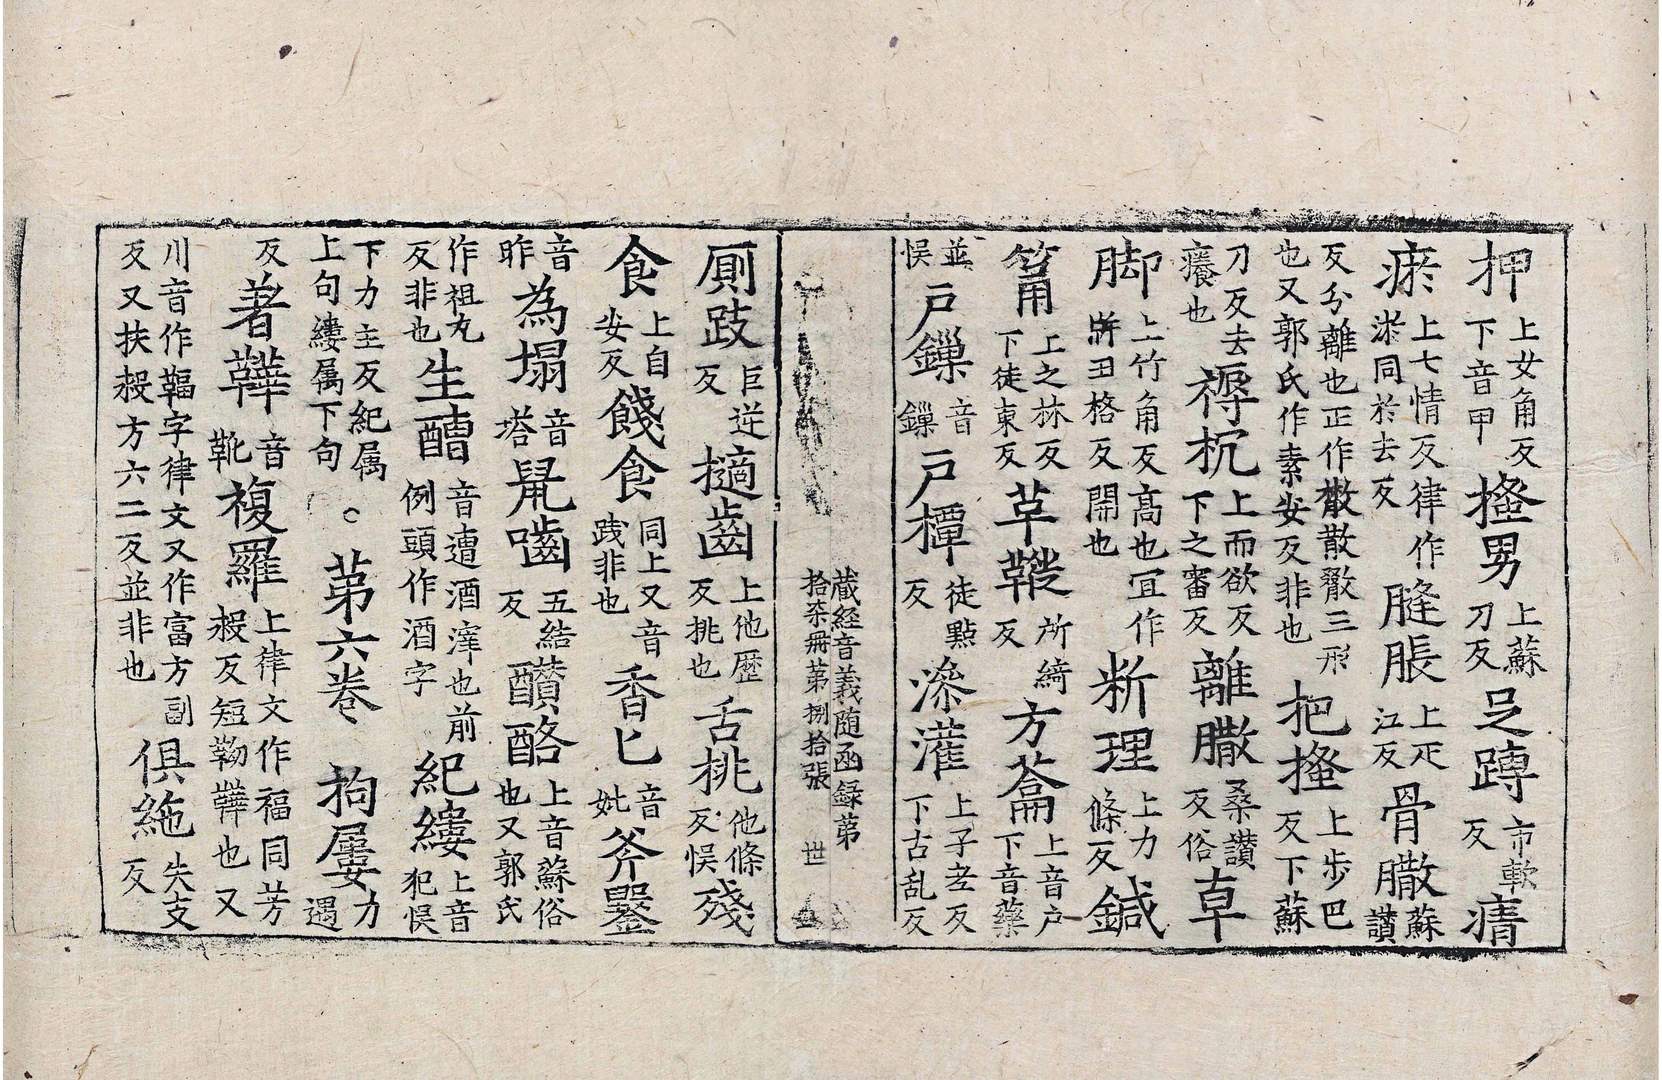 押上女角反下音甲搔男上蘇刀反足蹲市軟反瘠
瘀上七情反律作㳺同於去反膖脹上疋江反骨䐿蘇讃
反分離也正作㪚散𣀙三形也又郭氏作素安反非也把搔上步巴反下蘇
刀反去癢也褥枕上而欲反下之審反離䐿桑讃反俗草
脚上竹角反高也冝作牂丑格反開也断理上力條反鍼
筩上之林反下徒東反草鞻所綺反方蘥上音户下音藥
並悮户鏁音鏁户橝徒點反澡灌上子老反下古乱反
蔵經音義随函録第拾柒冊第捌拾張 世
厠跂巨逆反擿齒上他歷反挑也舌挑他條反悮殘
食上自安反餞食同上又音踐非也香匕音妣斧鑿
音昨為塌音塔鼠嚙五結反䣤酪上音蘇俗也又郭氏
作祖丸反非也生醩音遭酒滓也前例頭作酒字紀縷上音犯悮
下力主反紀属上句縷属下句。第六卷 拘屢力遇
反著鞾音靴複羅上律文作福同芳縠反短靿鞾也又
川音作鞴字律文又作富方副反又扶縠方六二反並非也俱絁失支反